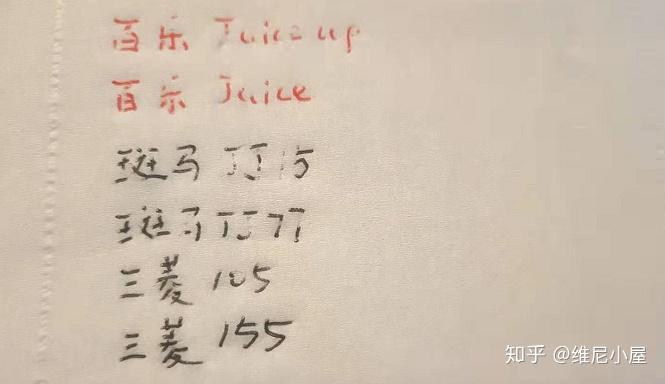 百乐 Juice up
百乐 Juice
斑马 JJ15
斑马 JJ77
三菱 105
三菱 155
知乎 @维尼小屋